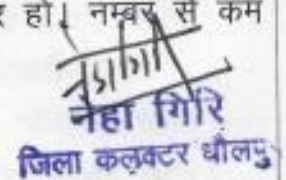 हो। नम्बर से कम
नेहा गिरि
जिला कलक्टर धौलपु